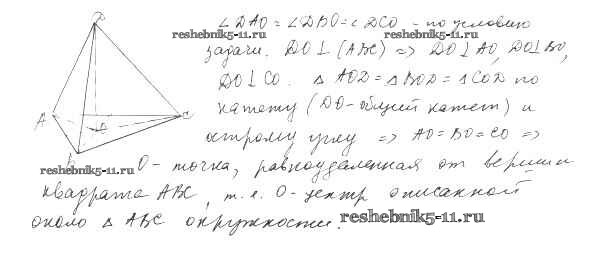 D
A
C
B
O
∠DAO = ∠DBO = ∠DCO - по условию
reshebnik5-11.ru
задачи. DO⊥(ABC) => DO⊥AO, DO⊥BO,
DO⊥CO. △AOD = △BOD = △COD по
катету (DO - общий катет) и
острому углу => AO = BO = CO =>
reshebnik5-11.ru
O - точка, равноудаленная от вершин
квадрата ABC, т.е. O - центр описанной
около △ABC окружности.
reshebnik5-11.ru